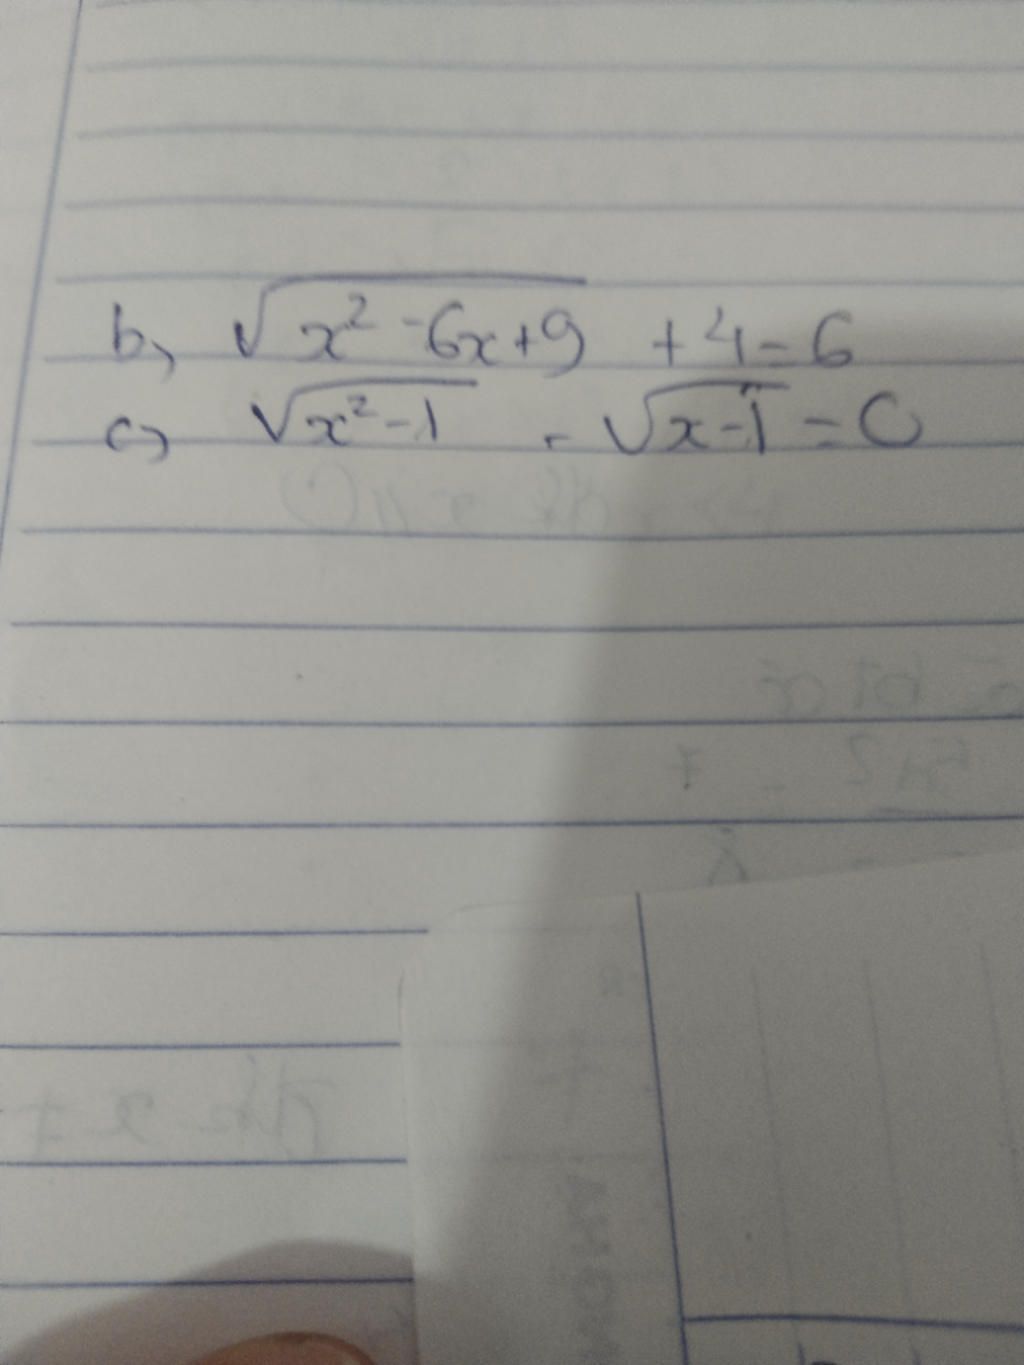 b, √(x² - 6x + 9) + 4 = 6
c, √(x² - 1) - √(x - 1) = 0